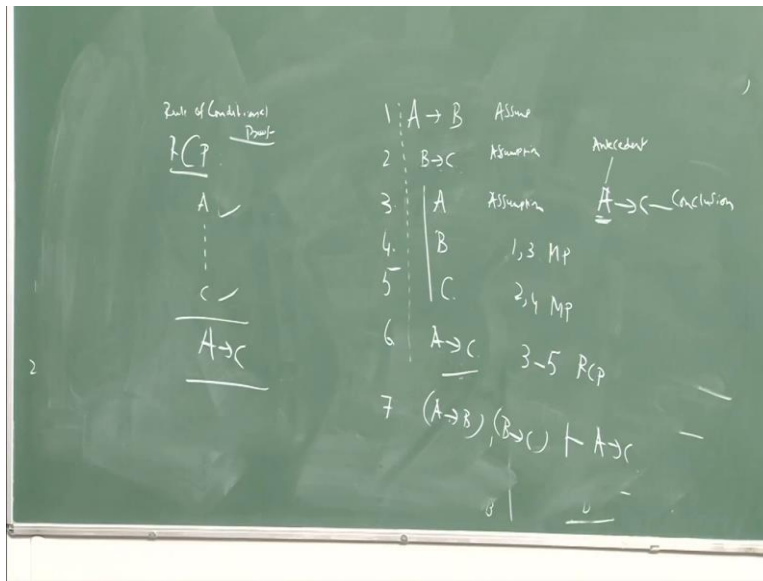 Rule of Conditional
Proof
RCP
A ✓
C ✓
A→C
2
1 A→B Assume
2 B→C Assumption
3. A Assumption
4. B 1,3 MP
5 C. 2,4 MP
6 A→C 3-5 RCP
7 (A→B),(B→C) ⊢ A→C
Antecedent
A→C — Conclusion